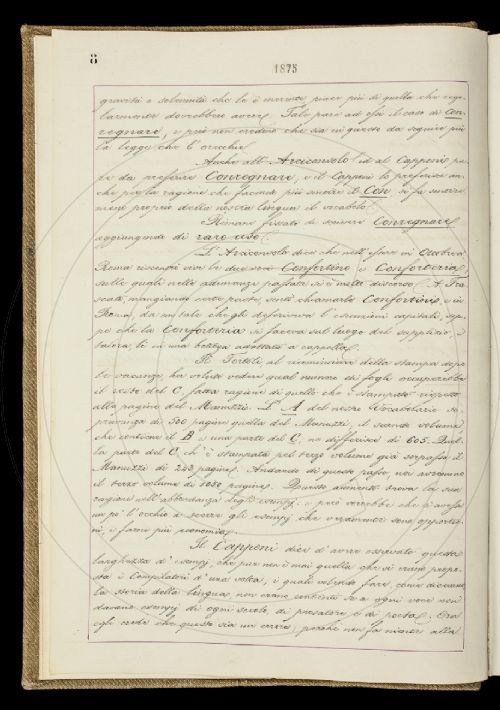 8
1875
gravità e solennità che le è inerente piace più di quella che rego-
larmente dovrebbe avere. Tale pare ad essi il caso di Con-
regnare, e però non credono che sia in questo da seguire più
la legge che l'orecchio.
Anche all'Arciconsolo ed al Capponi pa-
re da preferire Conregnare, e il Capponi lo preferisce an-
che per la ragione che facendo più sentire il Con si fa
meno proprio della nostra lingua il vocabolo.
Rimane fissato di scrivere Conregnare
aggiungendo di raro uso.
L'Arciconsolo dice che nell'essere in Ottobre a
Roma riscontrò vive le due voci Confortino e Conforteria,
sulle quali nelle adunanze passate si è molto discorso. A Fra-
scati, mangiando certe paste, sentì chiamarle Confortini, e in
Roma, da un tale che gli descriveva l'esecuzioni capitali, sep-
pe che la Conforteria si faceva sul luogo del supplizio, e
talora, lì in una bottega adattata a cappella.
Il Tortoli al ricominciare della stampa dopo
le vacanze, ha voluto vedere qual numero di fogli occuperebbe
il resto del C, fatta ragione di quello che è stampato rispetto
alla pagina del Manuzzi. L'A del nostro Vocabolario so-
pravanza di 300 pagine quella del Manuzzi, il secondo volume
che contiene il B e una parte del C, ne differisce di 605. Quel-
la parte del C ch'è stampata pel terzo volume già sorpassa il
Manuzzi di 243 pagine. Andando di questo passo, noi avremmo
il terzo volume di 1030 pagine. Questo aumento trova la sua
ragione nell'abbondanza degli esempj, e però vorrebbe che si avesse
un po' l'occhio a scorre gli esempj che veramente sono opportu-
ni, e farne più economia.
Il Capponi dice d'avere osservato questa
larghezza d'esempj, che pur non è mai quella che si eran propo-
sta i Compilatori d'una volta, i quali volendo fare, come dicevano,
la storia della lingua, non erano contenti se a ogni voce non
davano esempj di ogni secolo, di prosatore e di poeta. Ora
egli crede che questo sia un errore; perchè non fa niente alla